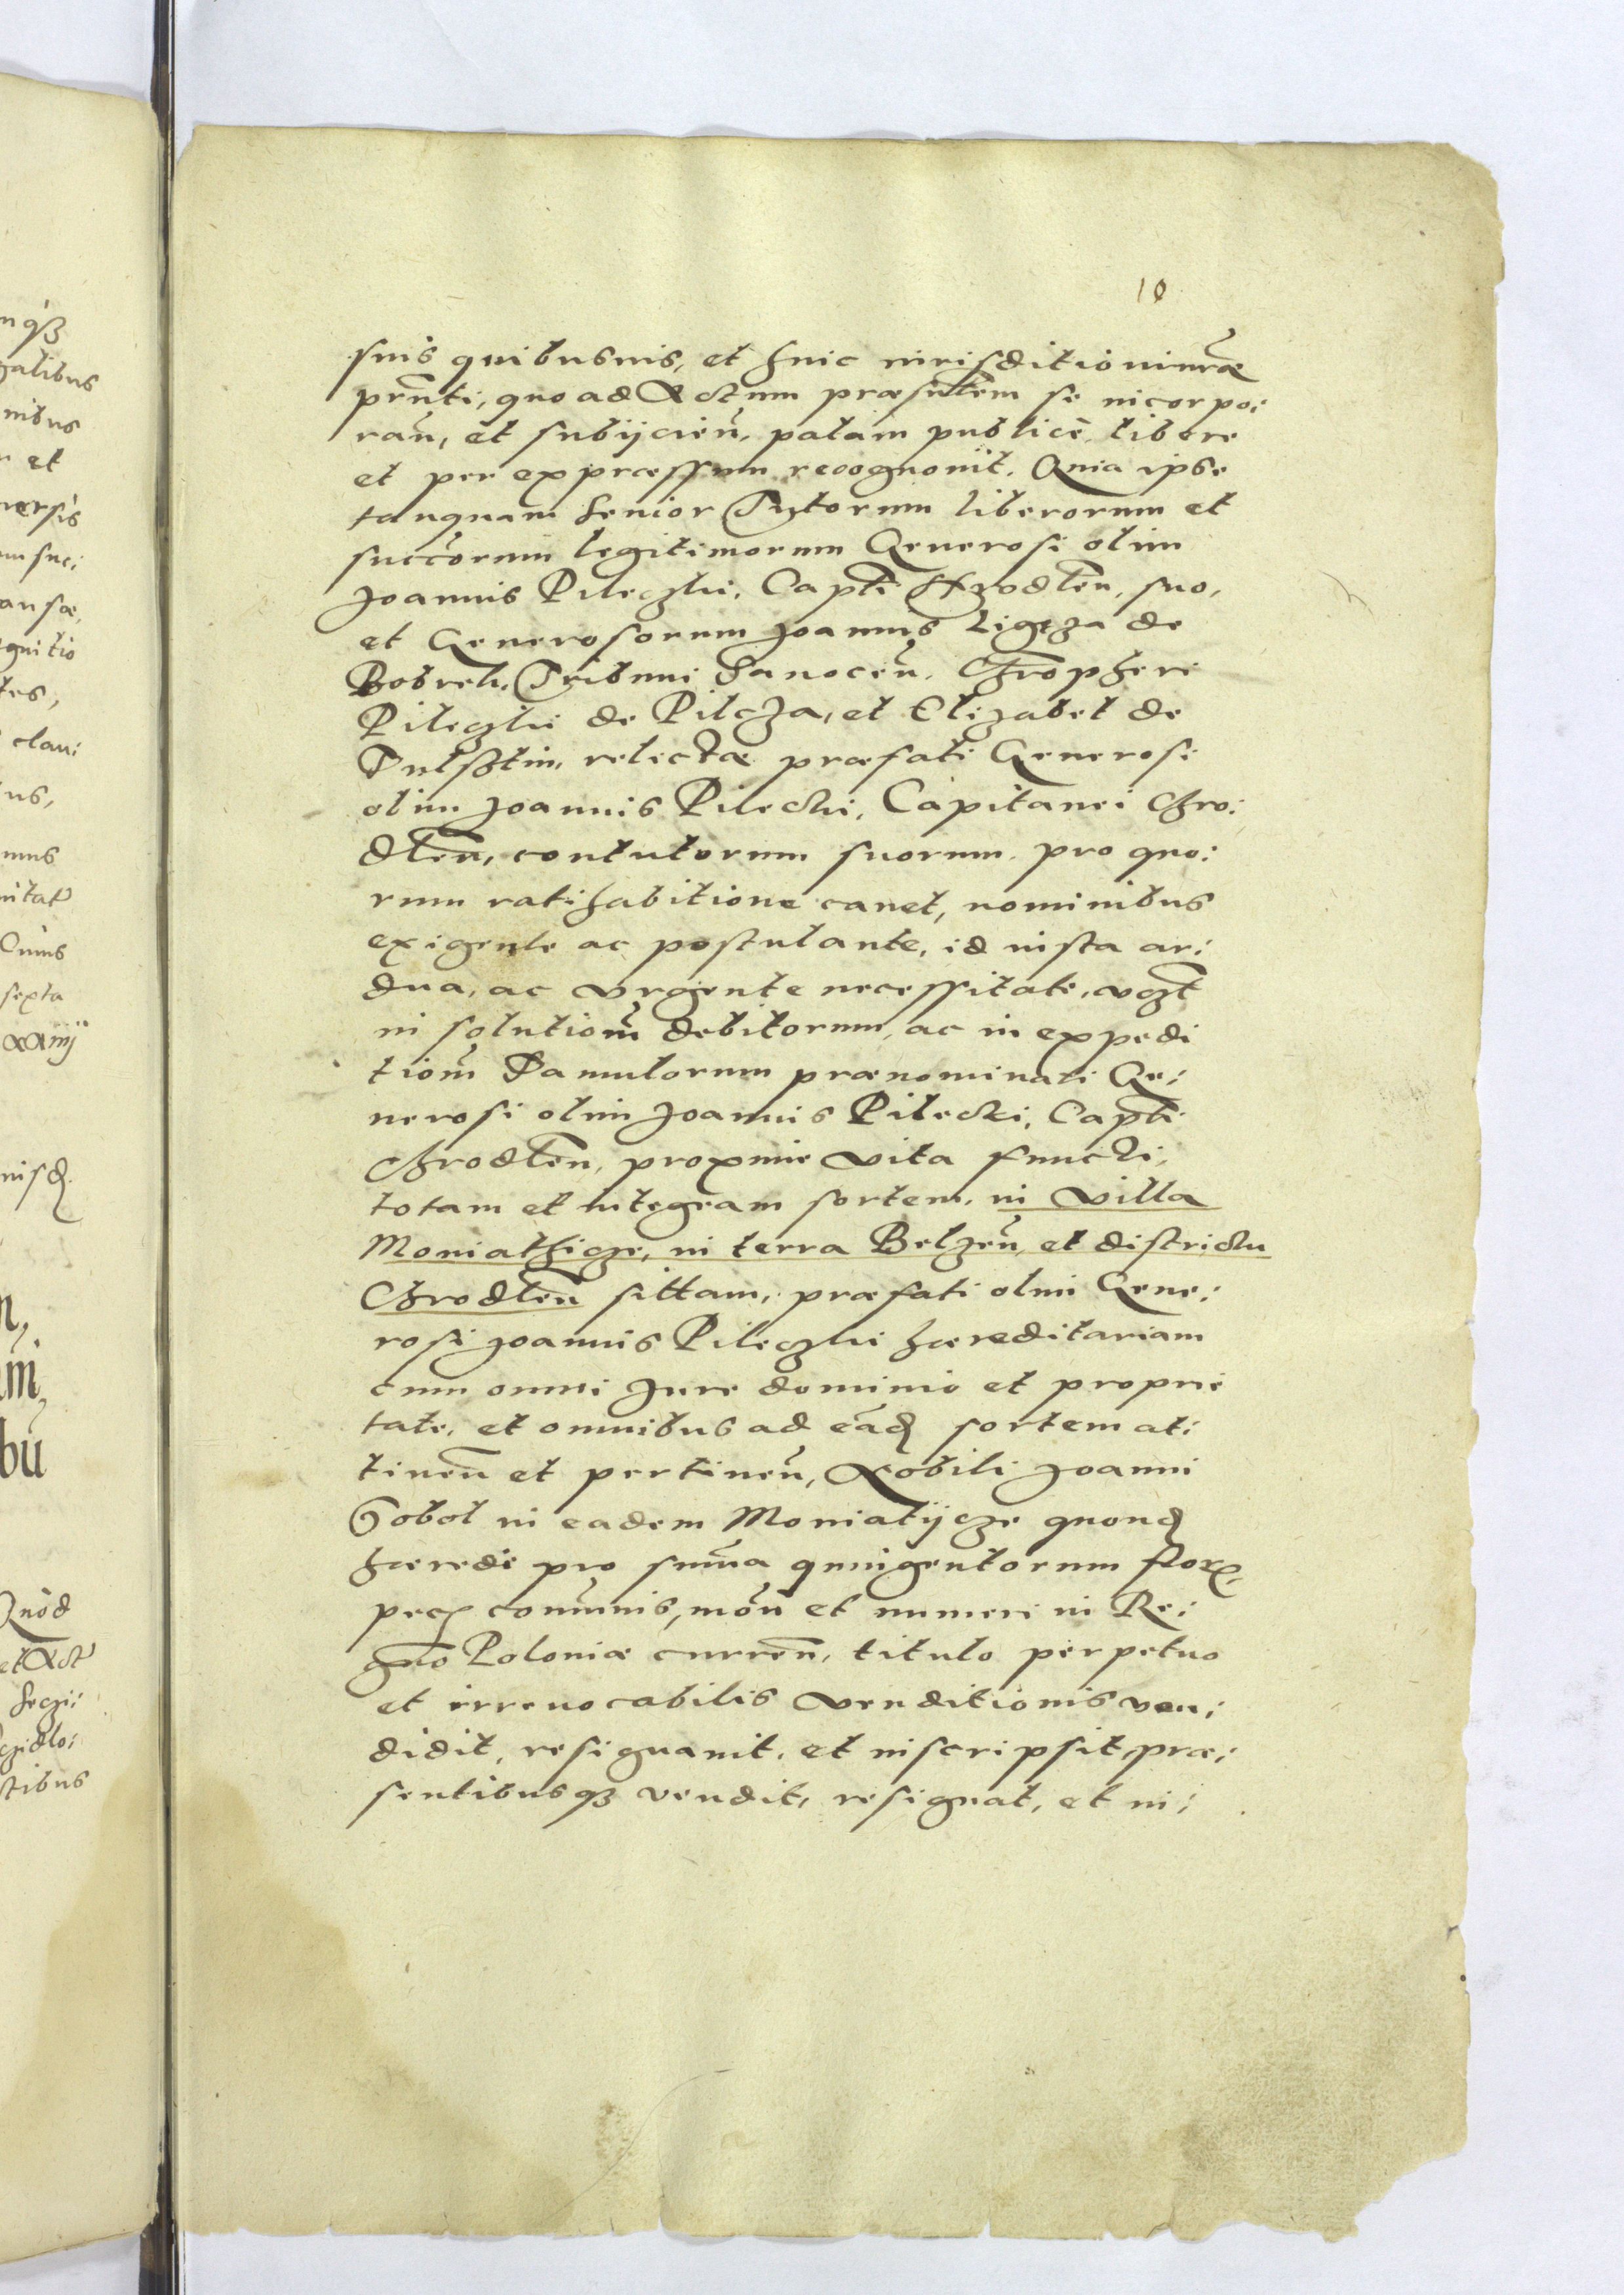 10
suis quibusuis, et huic iurisditioni nr̃æ
prñti, quo ad Actum præsentem se incorpo:
ran̄, et subijcien̄, palam publicè, libere
et per expræssum recognouit. Quia ipse
tanquam Senior Tutorum liberorum et
succ̃orum legitimorum Generosi olim
Joannis Pileczki, Captĩ Hrodlen̄, suo,
et Generosorum Joannis Ligęza de
Bobrek, Tribuni Sanocen̄, Chrõpheri
Pileczki de Pilcza, et Elizabet de
Tulsztin, relictæ præfati Generosi
olim Joannis Pilecki, Capitanei Hro:
dlen̄, contutorum suorum, pro quo:
rum ratihabitione cauet, nominibus
exigente ac postulante, id iusta ar:
dua, ac urgente necessitate, vczt
in solutiom̄ debitorum, ac in expedi
tiom̄ Famulorum prænominati Ge:
nerosi olim Joannis Pilecki, Captĩ
Hrodlen̄, proxime vita functi,
totam et integram sortem, in villa
Moniathicze, in terra Belzen̄, et districtu
Hrodlen̄ sittam, præfati olim Gene:
rosi Joannis Pileczki hæreditariam
cum omni Jure dominio et proprie
tate, et omnibus ad eãd sortem at:
tinen̄ et pertinen̄, Nobili Joanni
Sobol in eadem Moniatijcze quond
hæredi pro sum̄a quingentorum flor,
pec com̄unis, mon̄ et numeri in Re:
gno Poloniæ curren̄, titulo perpetuo
et irreuocabilis venditionis ven:
didit, resignauit, et inscripsit, præ:
sentibusq3 vendit, resignat, et in: